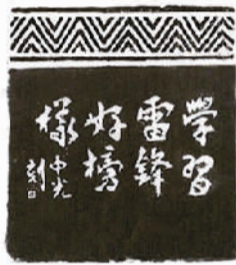 學習
雷鋒
好榜
樣
中光
刻